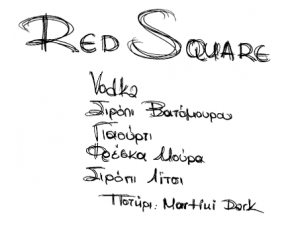 RED SQUARE
Vodka
Σιρόπι Βατόμουρου
Γιαούρτι
Φρέσκα Μούρα
Σιρόπι Λίτσι
Ποτήρι: Martini Dark